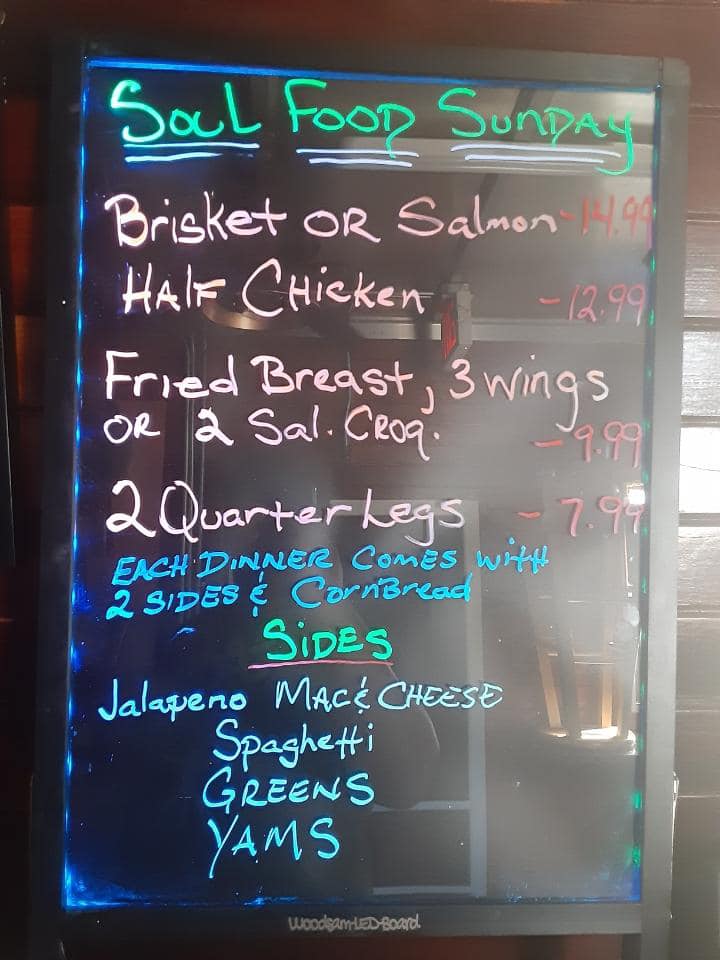 Soul Food Sunday
Brisket OR Salmon - 14.99
HAlF CHicken - 12.99
Fried Breast, 3 wings
OR 2 Sal. CROq. - 9.99
2 Quarter Legs - 7.99
EACH DINNER COMES WITH
2 SIDES & CornBread
SiDES
Jalapeno MAC & CHEESE
Spaghetti
GREENS
YAMS
Woodsam-LED-Board